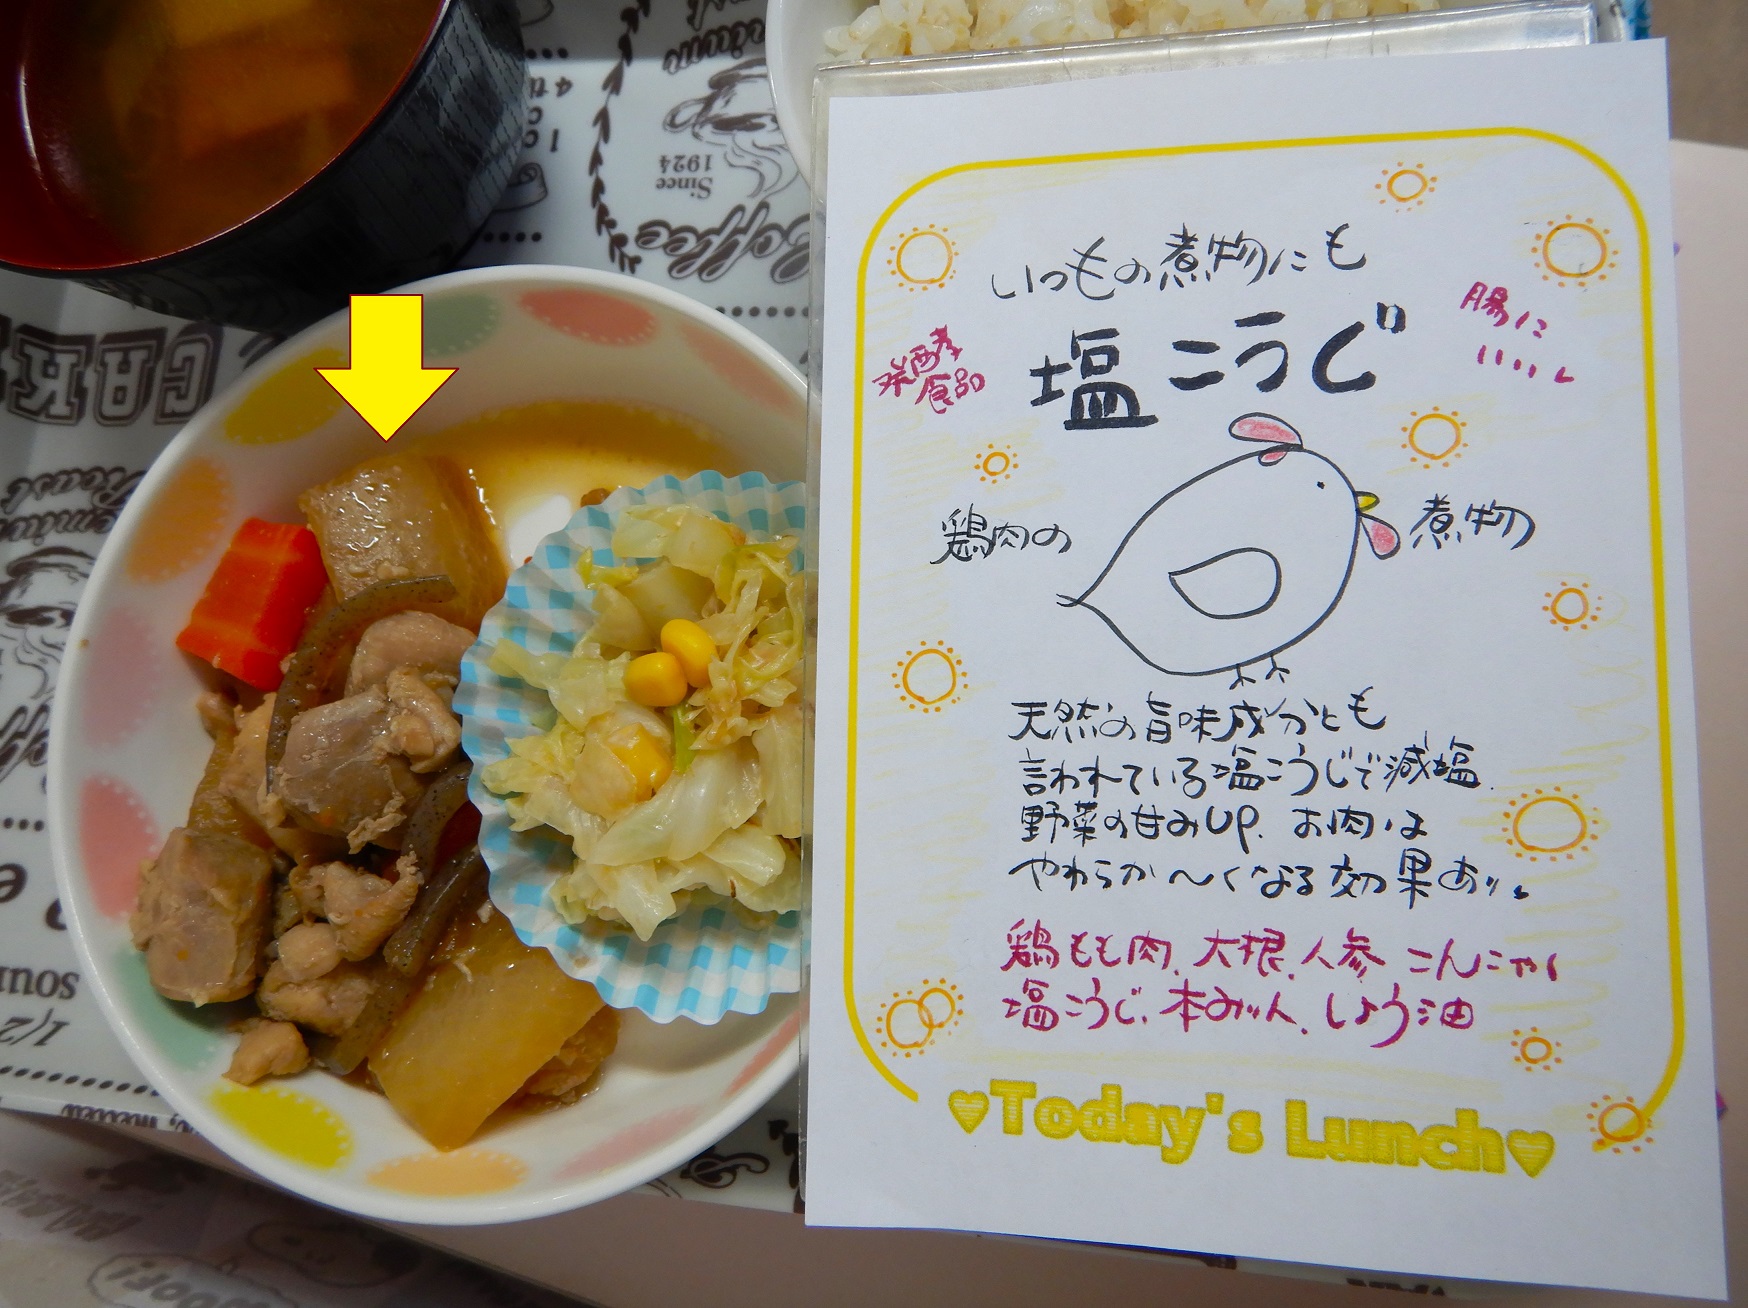 いつもの煮物にも
発酵食品
塩こうじ
腸に
いいし
鶏肉の
煮物
天然の旨味成分とも
言われている塩こうじで減塩.
野菜の甘みUP. お肉は
やわらか〜くなる効果あり。
鶏もも肉、大根、人参 こんにゃく
塩こうじ、本みりん、しょう油
♥Today's Lunch♥
Since
1924
Coffee
CAK
Roast
sour
1/2
WOOF!